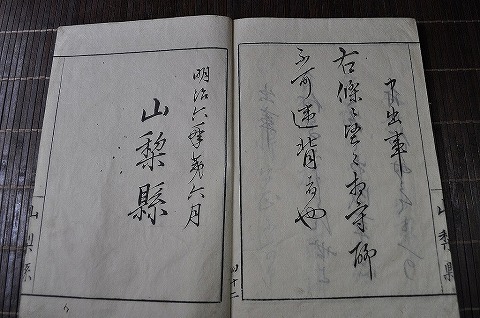 申出事
右條々堅く相守聊
不可違背者也
明治六年六月
山梨縣
山梨縣
山梨縣
四十二